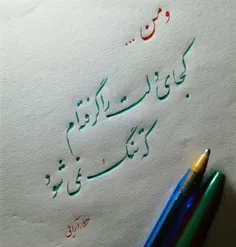 و من ...
کجای دلت را گرفته ام
که تنگ نمی شود